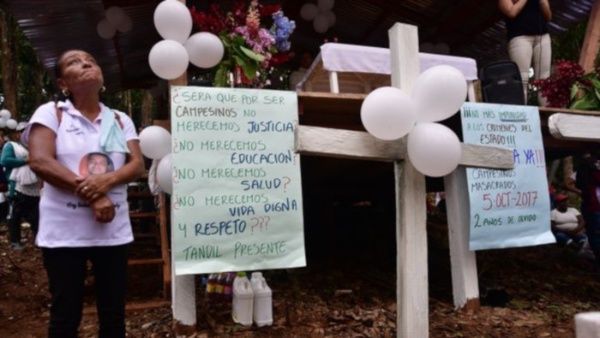 ¿SERA QUE POR SER
CAMPESINOS NO
MERECEMOS JUSTICIA
¿NO MERECEMOS
EDUCACION?
¿NO MERECEMOS
SALUD?
¿NO MERECEMOS
VIDA DIGNA
Y RESPETO???
TANDIL PRESENTE
¡¡¡NO MAS IMPUNIDAD
A LOS CRIMENES DEL
ESTADO!!!
YA!!!
CAMPESINOS
MASACRADOS
5-OCT-2017
2 AÑOS DE OLVIDO